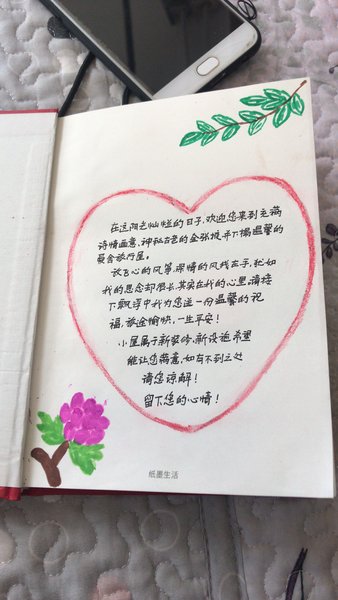 在这阳光灿烂的日子,欢迎您来到充满
诗情画意,神秘古色的金张掖丹下揭温馨的
聚合旅行屋。
放飞心的风筝,深情的风线在手,犹如
我的思念却很长,其实在我的心里,请接
下飘浮中我为您送一份温馨的祝
福,旅途愉快,一生平安!
小屋属于新装修,新设施希望
能让您满意,如有不到之处
请您谅解!
留下您的心情!
纸墨生活